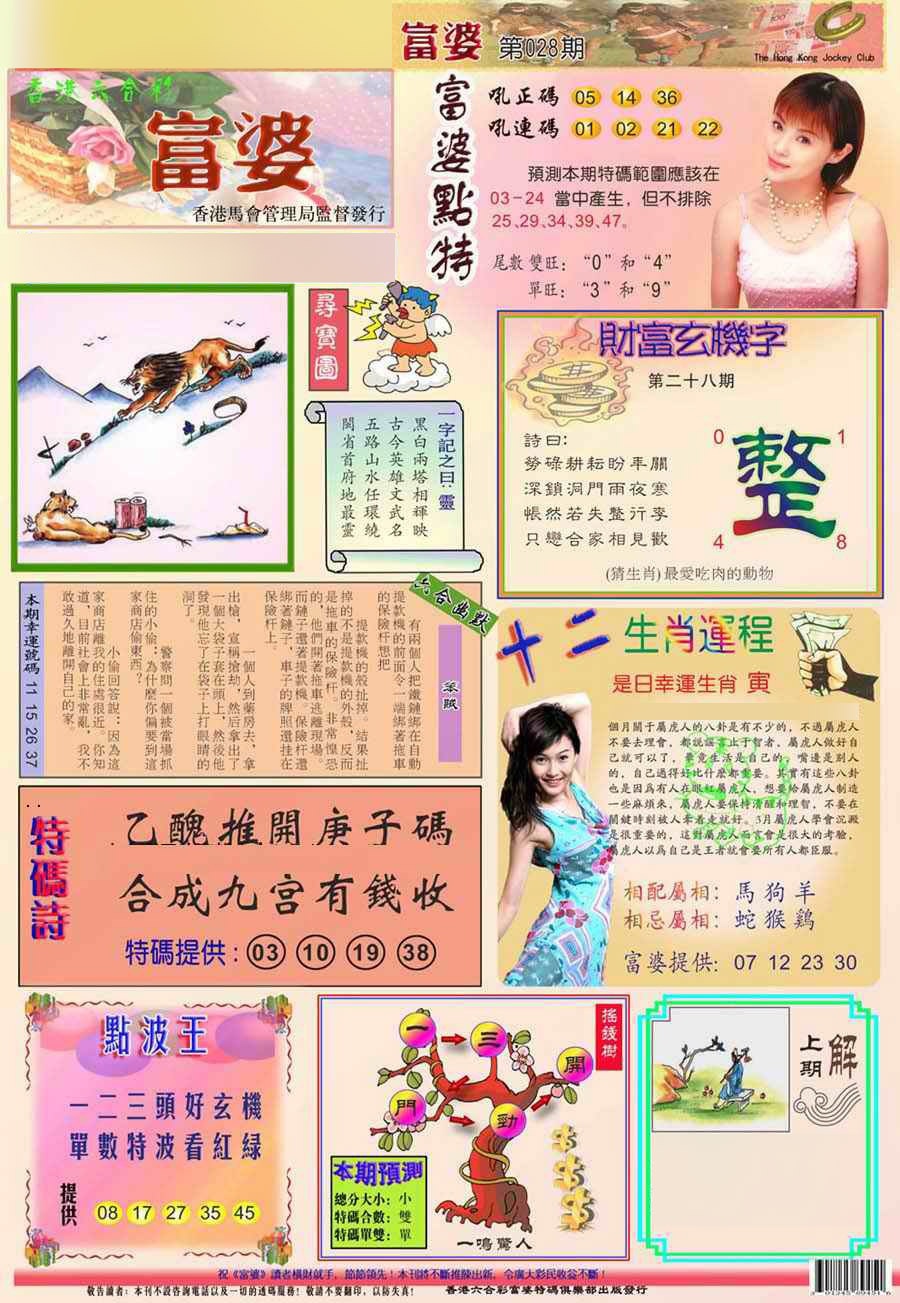 富婆 第028期
The Hong Kong Jockey Club
香港六合彩
富婆
香港馬會管理局監督發行
富婆點特
吼正碼 05 14 36
吼連碼 01 02 21 22
預測本期特碼範圍應該在
03-24 當中產生，但不排除
25、29、34、39、47。
尾數雙旺：“0”和“4”
單旺：“3”和“9”
尋寶圖
一字記之曰：靈
黑白兩塔相輝映
古今英雄文武名
五路山水任環繞
閩省首府地最靈
財富玄機字
第二十八期
詩曰：
勞碌耕耘盼年關
深鎖洞門雨夜寒
悵然若失整行李
只戀合家相見歡
0 1
整
4 8
(猜生肖)最愛吃肉的動物
六合幽默
笨賊
有兩個人把鐵鏈綁在自動
提款機的前面令一端綁著拖車
的保險杆想把
提款機的殼扯掉。結果扯
掉的不是提款機的外殼，反而
是拖車的保險杆。非常惶恐
的，他們開著拖車逃離現場。
而鏈子還接著提款機。保險杆還
綁著鏈子，車子的牌照還挂在
保險杆上。
一個人到藥房去，拿
出槍，宣稱搶劫，然后拿出了
一個大袋子套在頭上，然後他
發現他忘了在袋子上打眼睛的
洞了。
警察問一個被當場抓
住的小偷：為什麼你偏要到這
家商店偷東西？
小偷回答說：因為這
家商店離我的住處很近。你知
道，目前社會上非常亂，我不
敢過久地離開自己的家。
本期幸運號碼 11 15 26 37
十二生肖運程
是日幸運生肖 寅
個月關于屬虎人的八卦是有不少的，不過屬虎人
不要去理會，都說謠言止于智者，屬虎人做好自
己就可以了，畢竟生活是自己的，嘴邊是別人
的，自己過得好比什麼都重要。其實有這些八卦
也是因爲有人在眼紅屬虎人，想要給屬虎人制造
一些麻煩來，屬虎人要保持清醒和理智，不要在
關鍵時刻被人牽着走就好。3月屬虎人學會沉澱
是很重要的，這對屬虎人而言會是很大的考驗，
屬虎人以爲自己是王者就會要所有人都臣服。
相配屬相：馬狗羊
相忌屬相：蛇猴鷄
富婆提供：07 12 23 30
特碼詩
乙醜推開庚子碼
合成九宮有錢收
特碼提供：03 10 19 38
點波王
一二三頭好玄機
單數特波看紅綠
提供 08 17 27 35 45
搖錢樹
一 三 開
門 勁
本期預測
總分大小：小
特碼合數：雙
特碼單雙：單
一鳴驚人
上期解
祝《富婆》讀者橫財就手，節節領先！本刊將不斷推陳出新，令廣大彩民收益不斷！
敬告讀者：本刊不設咨詢電話以及一切的透碼服務！敬請不要翻印，以防失真！
香港六合彩富婆特碼俱樂部出版發行